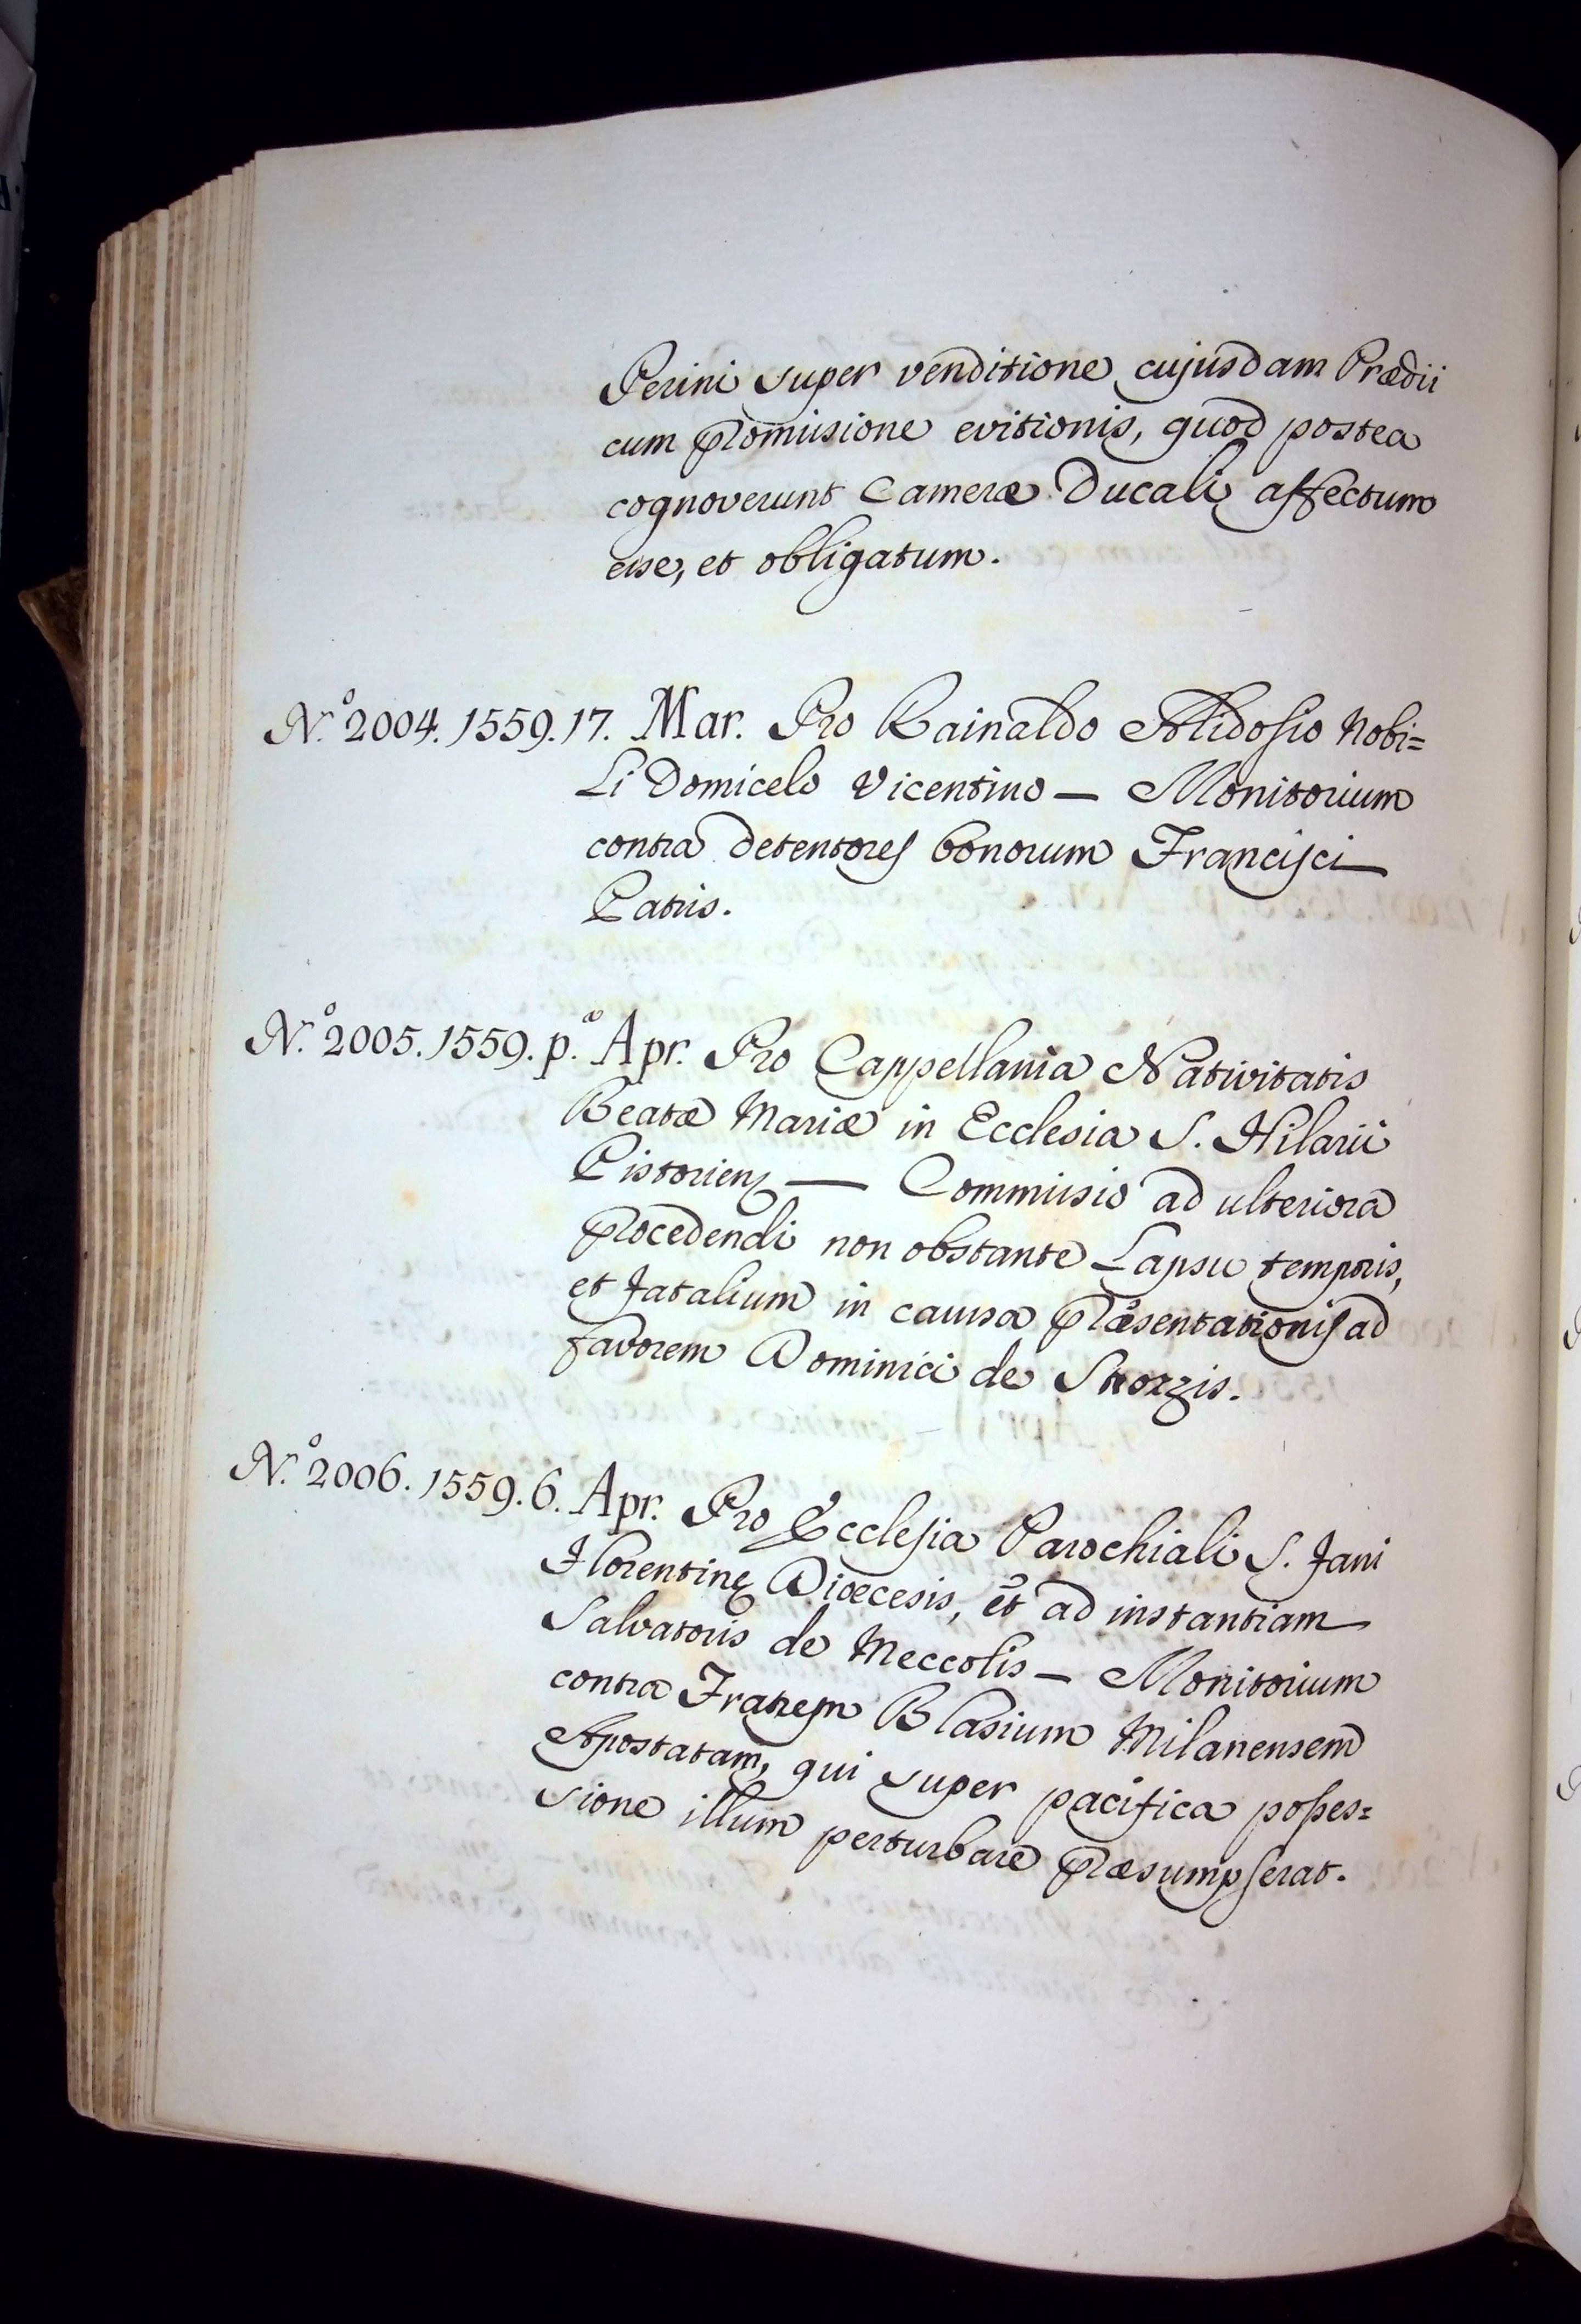 Perini super venditione cujusdam Prædii
cum promissione evitionis, quod postea
cognoverunt Cameræ Ducali affectum
esse, et obligatum.
N.º 2004. 1559. 17. Mar. Pro Rainaldo Alidosio Nobi=
li Domicelo Vicentino — Monitorium
contra detentores bonorum Francisci
Patris.
N.º 2005. 1559. p.ª Apr. Pro Cappellania Nativitatis
Beatæ Mariæ in Ecclesia S. Hilarii
Pistorien — Commissio ad ulteriora
procedendi non obstante Lapsu temporis,
et fatalium in caussa præsentationis ad
favorem Dominici de
N.º 2006. 1559. 6. Apr. Pro Ecclesia Parochiali S. Fani
Florentinę Diœcesis, et ad instantiam
Salvatoris de Meccolis — Monitorium
contra Fratrem Blasium Milanensem
Apostatam, qui super pacifica posses=
sione illum perturbare præsumpserat.